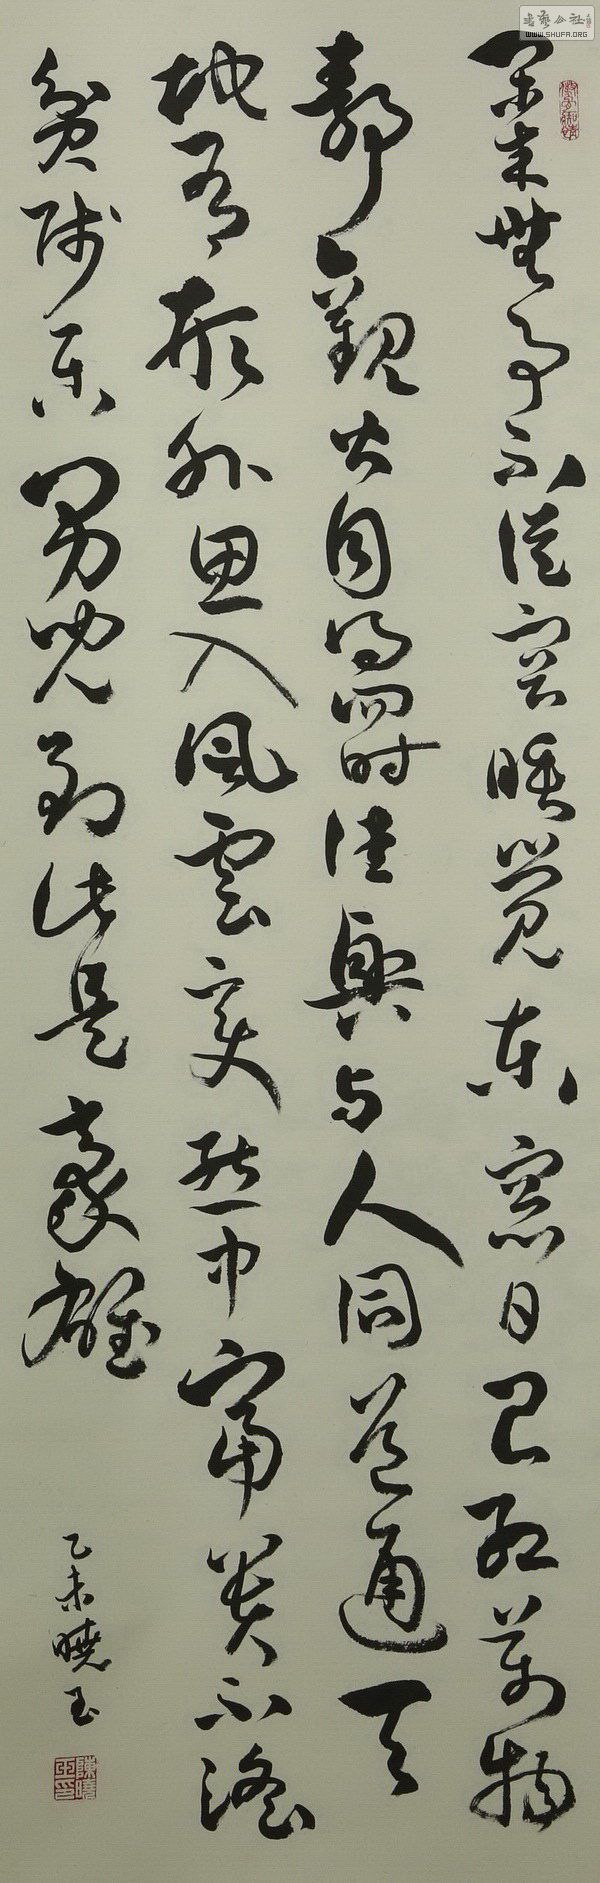 閑来無事不從容睡覺東窗日已紅萬物
靜觀皆自得四时佳興与人同道通天
地有形外思入風雲變態中富貴不淫
貧賤樂男兒到此是豪雄
乙未曉玉
陳曉玉印
書藝公社
WWW.SHUFA.ORG